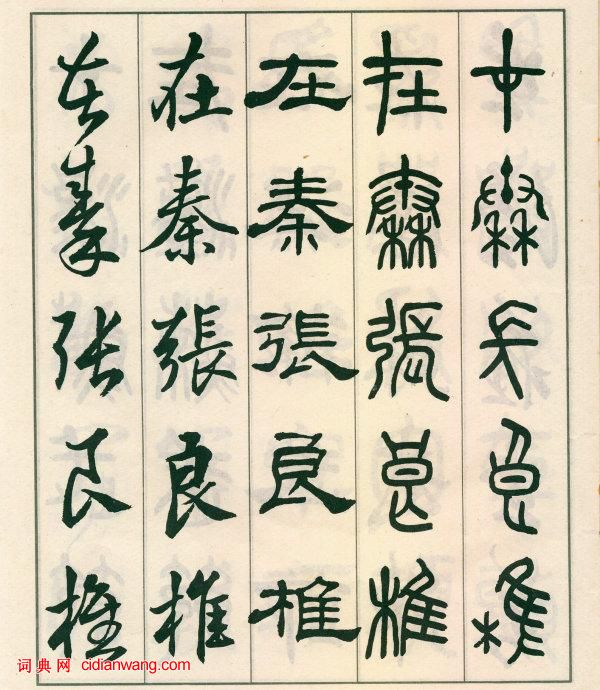 在秦張良椎
在秦張良椎
在秦張良椎
在秦張良椎
在秦張良椎
词典网 cidianwang.com